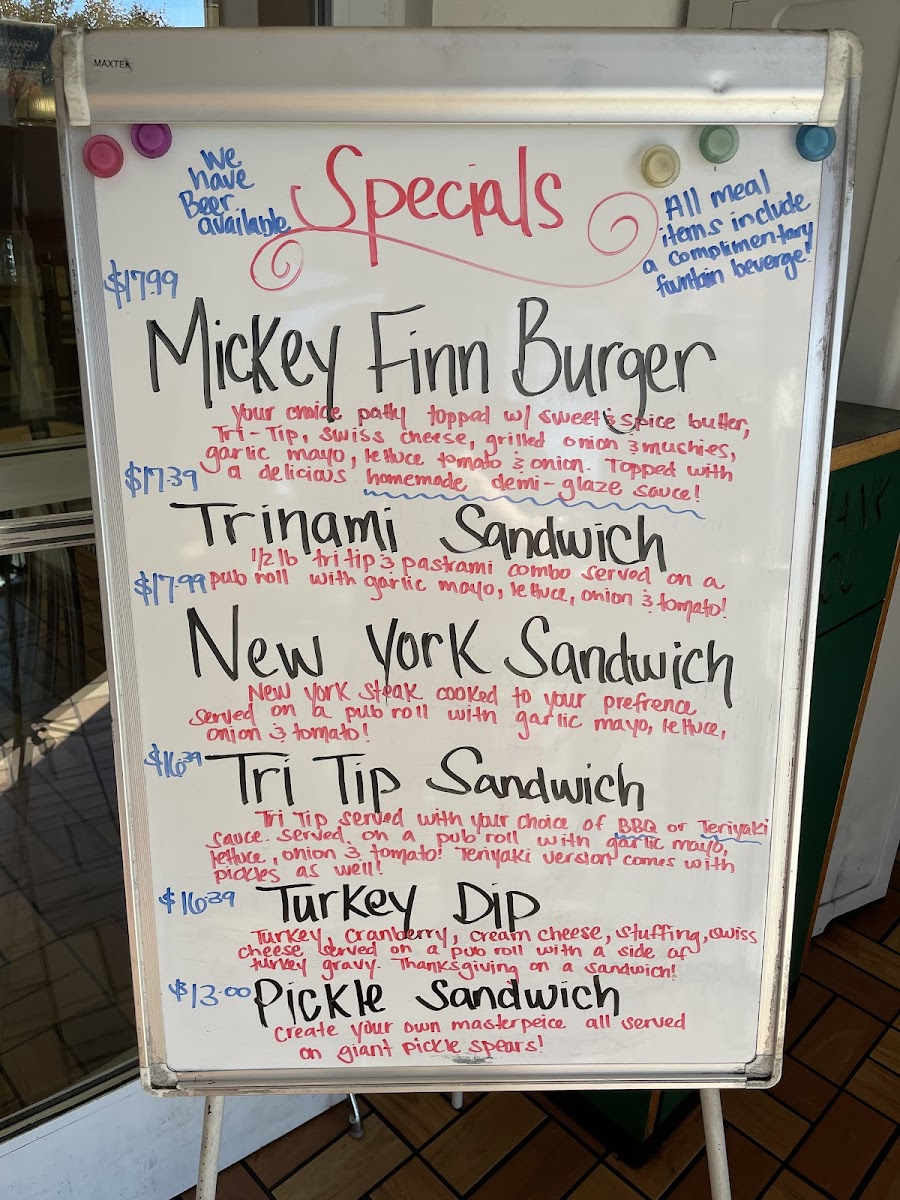 MAXTEK
We
have
Beer
available
Specials
All meal
items include
a complimentary
funtain beverge!
$17.99
Mickey Finn Burger
Your choice patty topped w/ sweet & spice butter,
Tri-Tip, swiss cheese, grilled onion & mushies,
garlic mayo, lettuce tomato & onion. Topped with
a delicious homemade demi-glaze sauce!
$17.39
Trinami Sandwich
1/2 lb tri tip & pastrami combo served on a
pub roll with garlic mayo, lettuce, onion & tomato!
$17.99
New York Sandwich
New York Steak cooked to your prefrence
served on a pub roll with garlic mayo, lettuce,
onion & tomato!
$16.39
Tri Tip Sandwich
Tri Tip served with your choice of BBQ or Teriyaki
sauce. Served on a pub roll with garlic mayo,
lettuce, onion & tomato! Teriyaki version comes with
pickles as well!
$16.39
Turkey Dip
Turkey, cranberry, cream cheese, stuffing, swiss
cheese served on a pub roll with a side of
turkey gravy. Thanksgiving on a sandwich!
$13.00
Pickle Sandwich
Create your own masterpeice all served
on giant pickle spears!